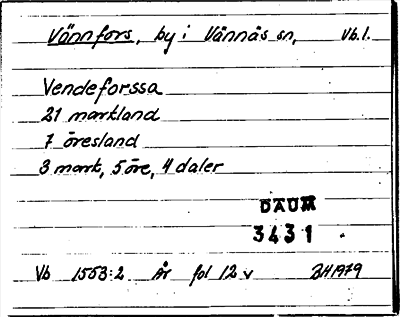 Vännfors, by i Vännäs sn, Vb.l.
Vendeforssa
21 markland
7 öresland
3 mark, 5 öre, 4 daler
DAUM
3431
Vb 1553:2 År fol 12 v BH1979